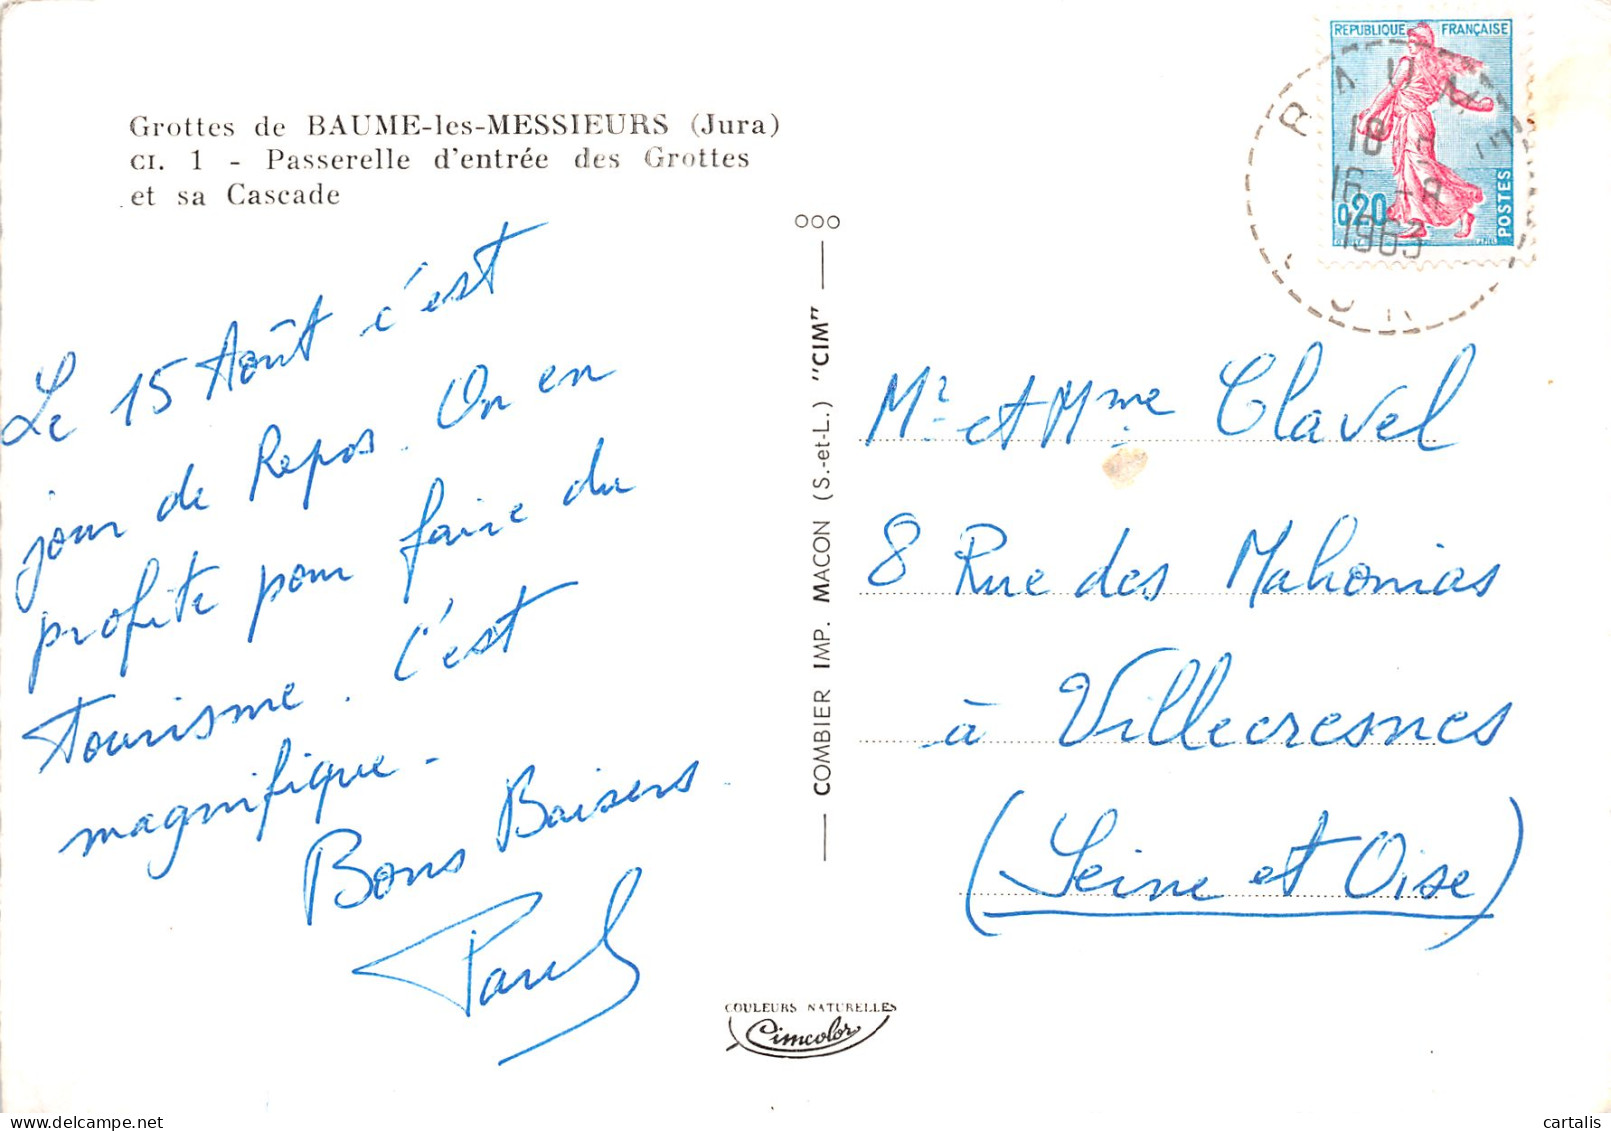 Grottes de BAUME-les-MESSIEURS (Jura)
CI. 1 - Passerelle d'entrée des Grottes
et sa Cascade
Le 15 Août c'est
jour de Repos. On en
profite pour faire du
tourisme. C'est
magnifique.
Bons Baisers.
Paul
COMBIER IMP. MACON (S.-et-L.) "CIM"
COULEURS NATURELLES
Cimcolor
REPUBLIQUE FRANÇAISE
0,20
POSTES
BAUME
18
16 -8
1963
Mr et Mme Clavel
8 Rue des Mahonias
à Villecresnes
(Seine et Oise)
delcampe.net
cartalis